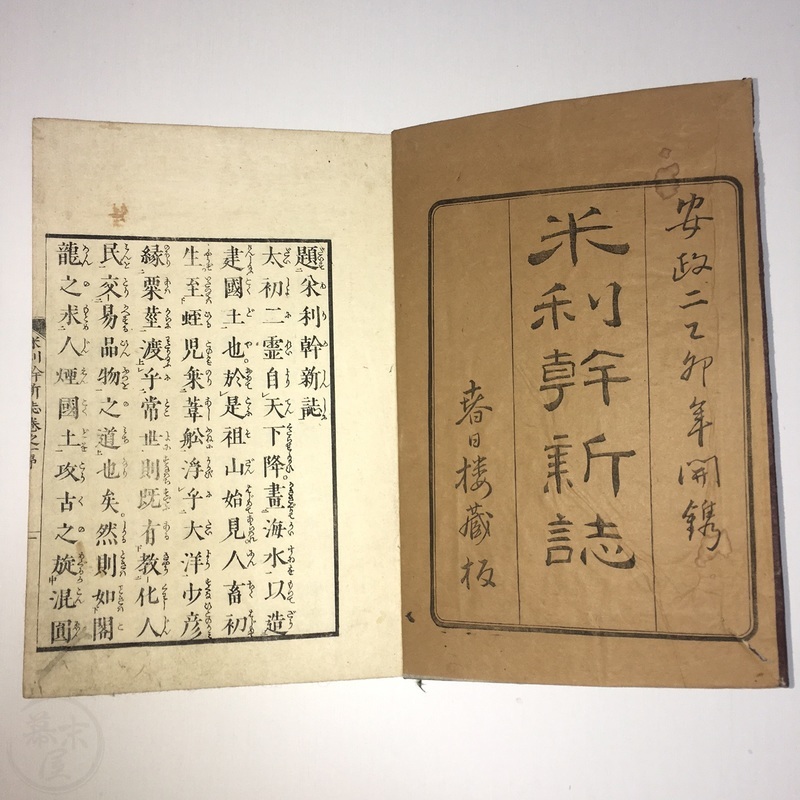 安政二乙卯年開鐫
米利幹新誌
春日楼蔵板
題米利幹新誌
太初二霊自天下降畫海水以造
建國土也於是祖山始見人畜初
生至蛭児乗葦舩浮乎大洋少彦
縁粟莖渡乎常世則既有教化人
民交易品物之道也矣然則如閣
龍之求人煙國土攻古之旋混圓
米利幹新誌巻之一序
幕末屋